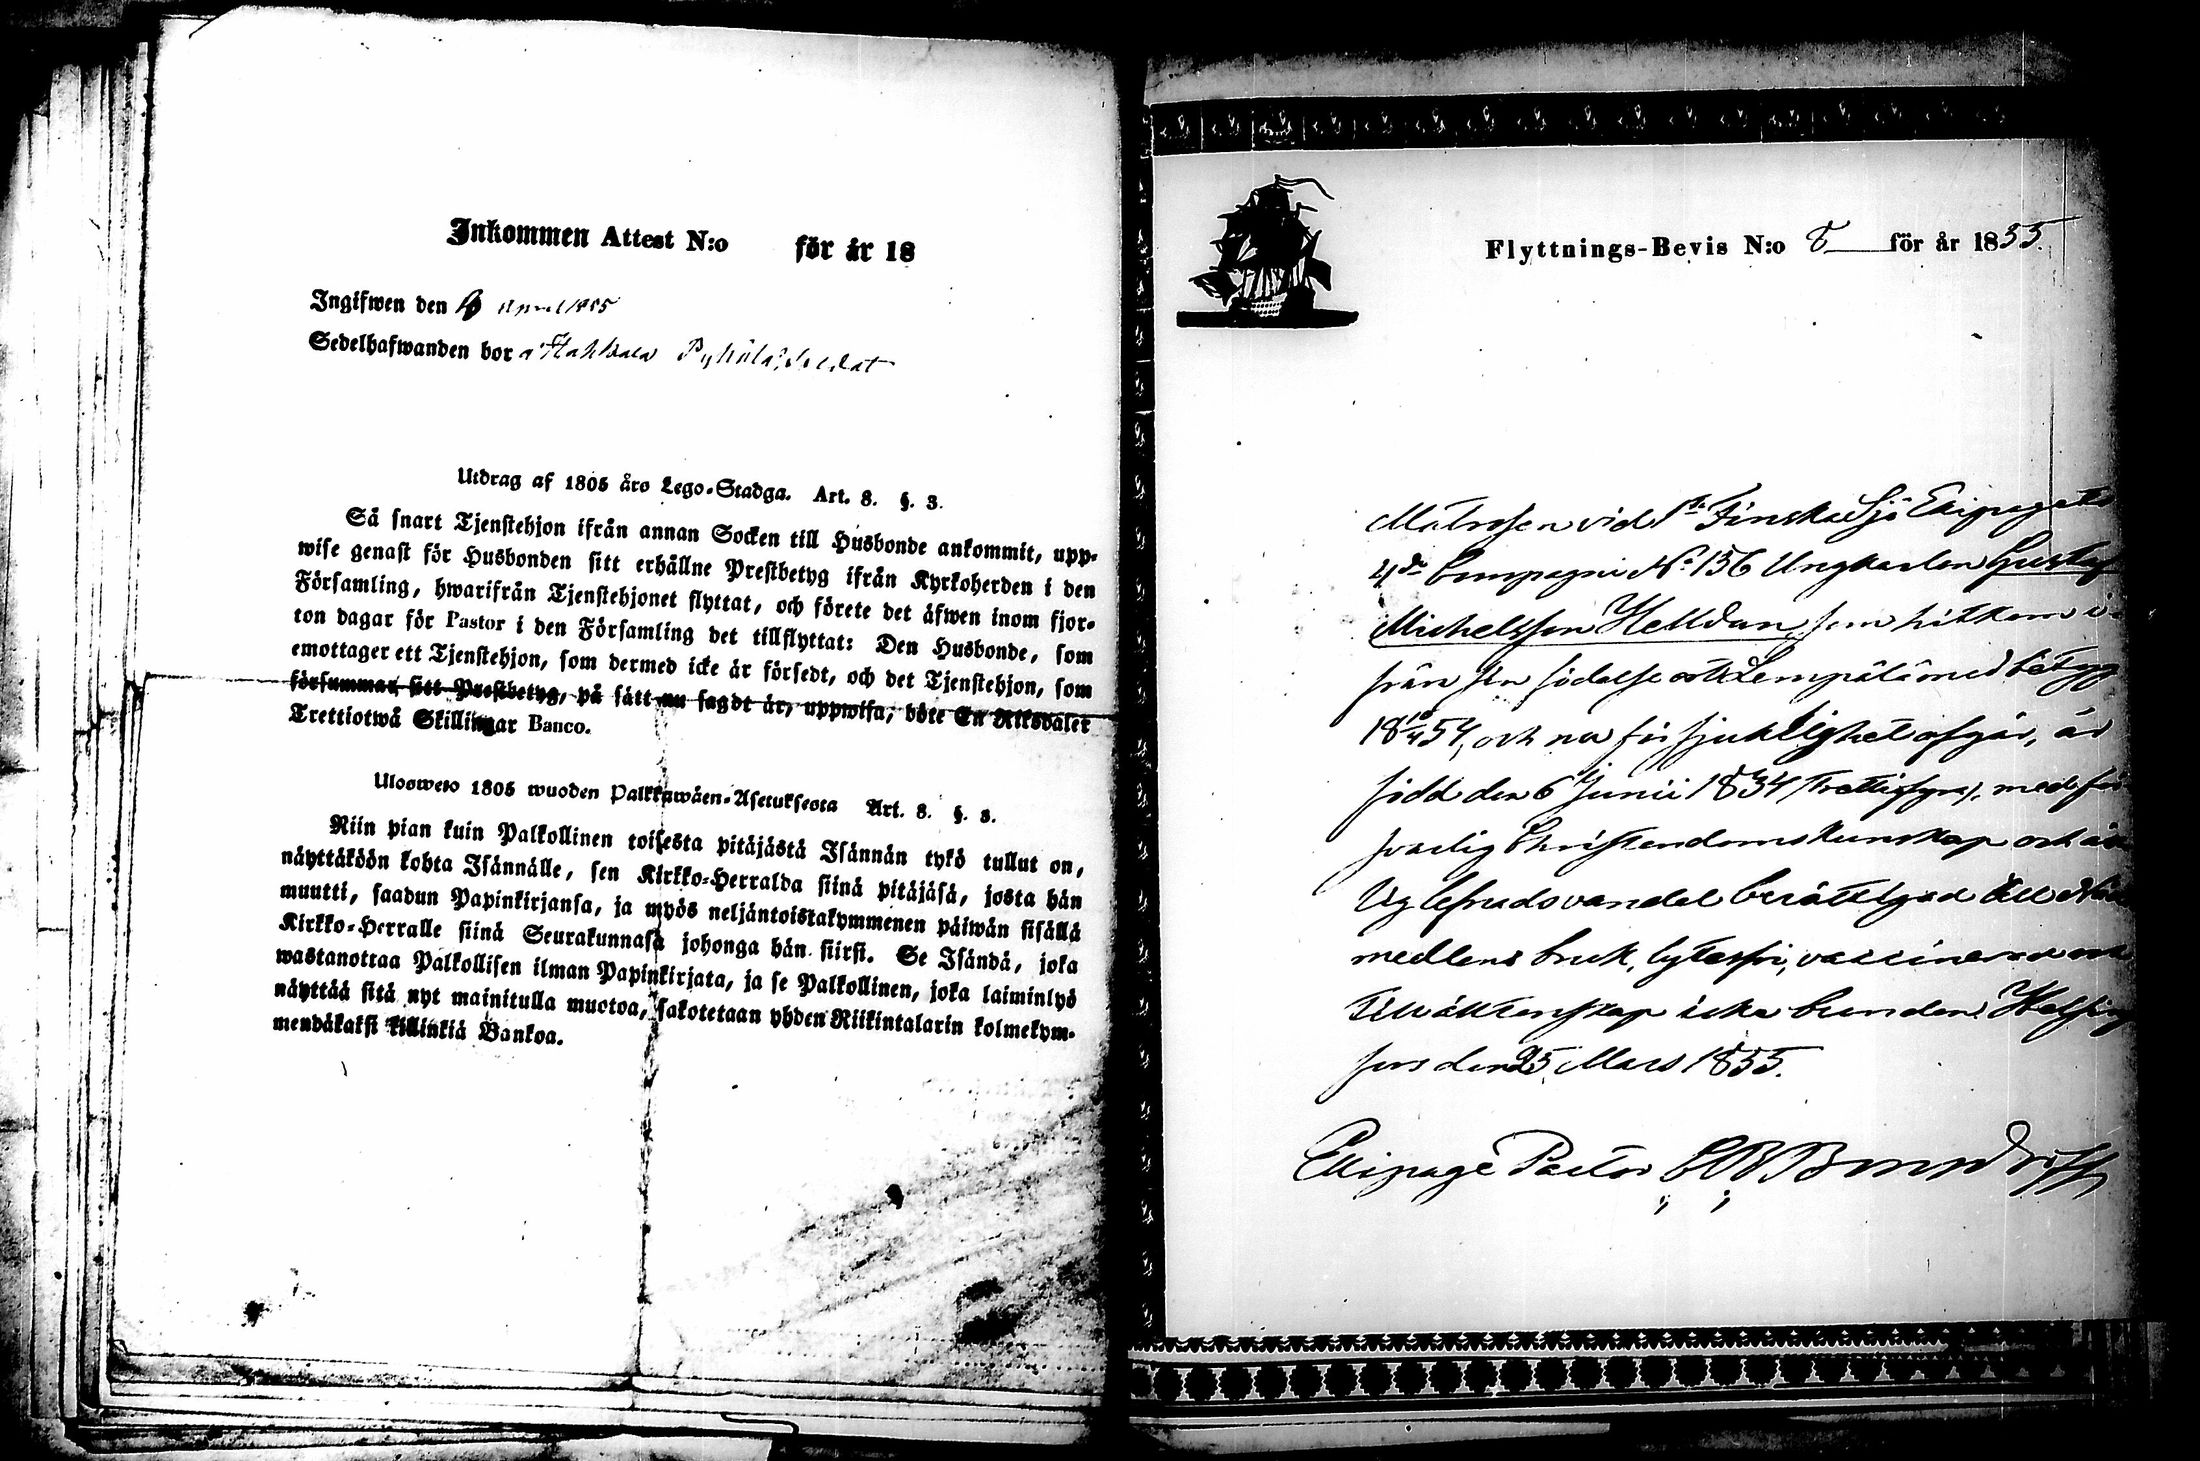 Inkommen Attest N:o för år 18
Ingifwen den April 1855
Sedelhafwanden bor å Hakkala Pyhölä Soldat
Utdrag af 1805 års Lego-Stadga. Art. 8. §. 3.
Så snart Tjenstehjon ifrån annan Socken till Husbonde ankommit, upp-
wise genast för Husbonden sitt erhållne Prestbetyg ifrån Kyrkoherden i den
Församling, hwarifrån Tjenstehjonet flyttat, och förete det äfwen inom fjor-
ton dagar för Pastor i den Församling det tillflyttat: Den Husbonde, som
emottager ett Tjenstehjon, som dermed icke är försedt, och det Tjenstehjon, som
försummar sitt Prestbetyg, på sätt nu sagdt är, uppwisa, böte En Riksdaler
Trettiotwå Skillingar Banco.
Ulosweto 1805 wuoden Palkkawäen-Asetuksesta Art. 8. §. 3.
Niin pian kuin Palkollinen toisesta pitäjästä Isännän tykö tullut on,
näyttäköön kohta Isännälle, sen Kirkko-Herralda siinä pitäjäsä, josta hän
muutti, saadun Papinkirjansa, ja myös neljäntoistakymmenen päiwän sisällä
Kirkko-Herralle siinä Seurakunnasa johonga hän siirsi. Se Isändä, joka
wastanottaa Palkollisen ilman Papinkirjata, ja se Palkollinen, joka laiminlyö
näyttää sitä nyt mainitulla muotoa, sakotetaan yhden Riikintalarin kolmekym-
mendäkaksi killinkiä Bankoa.
Flyttnings-Bevis N:o 8 för år 1855.
Matrosen vid 1sta Finska Sjö Ekipagets
4de Compagni No 156 Ungkarlen Gustaf
Michelsson Helldan, som hitkom i-
från sin födelseort Lempälä med betyg
18 10/4 54, och nu för sjuklighet afgår, är
född den 6 Junii 1834 (trettifyra), med för
svarlig Christendomskunskap och är
lig lefnadsvandel berättigad till Nåd
medlens bruk, lytesfri, vaccinerad och
till äktenskap icke bunden. Helsing
fors den 25 Mars 1855.
Ekipage Pastor